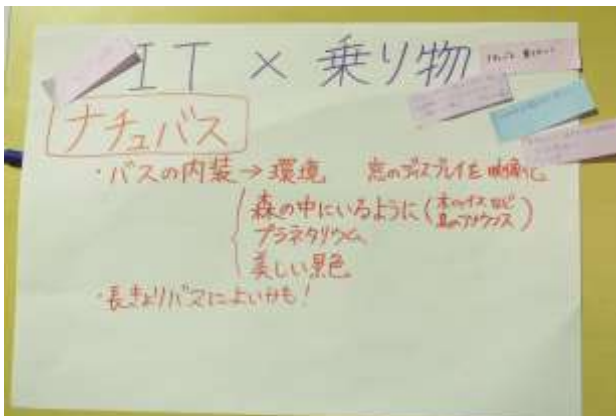 IT × 乗り物
ナチュバス
・バスの内装→環境 窓のディスプレイを映像に
森の中にいるように(木のイスなど
鳥のアナウンス)
プラネタリウム
美しい景色
・長きょりバスによいかも!